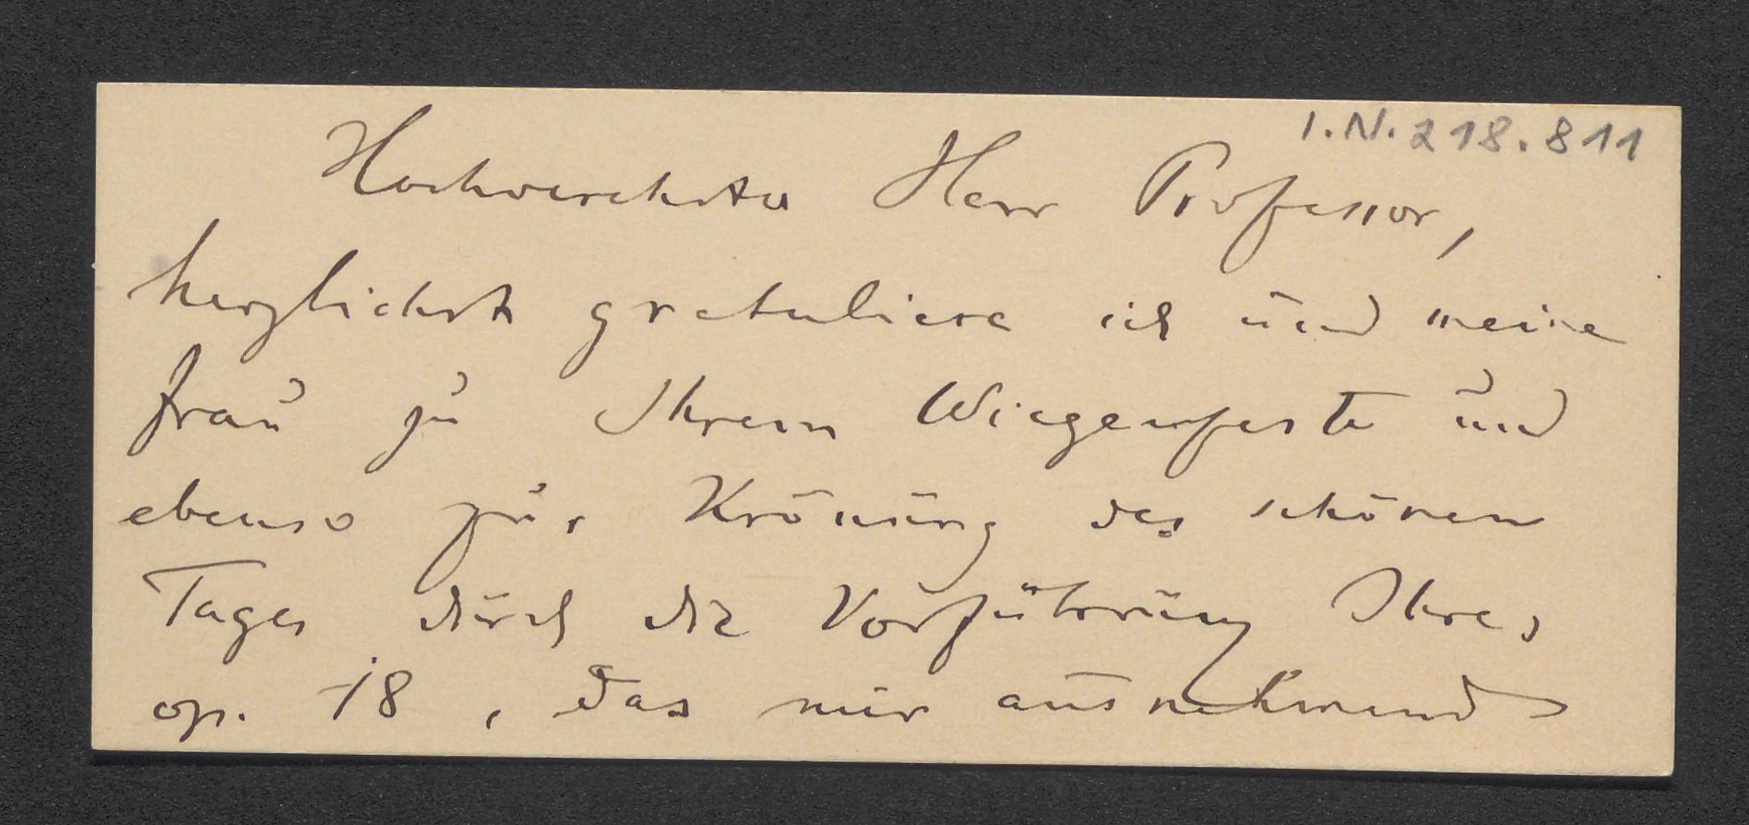 I.N. 218.811
Hochverehrter Herr Professor,
herzlichst gratuliere ich und meine
Frau zu Ihrem Wiegenfeste und
ebenso zur Krönung des schönen
Tages durch die Vorführung Ihres
op. 18, das mir ausnehmend